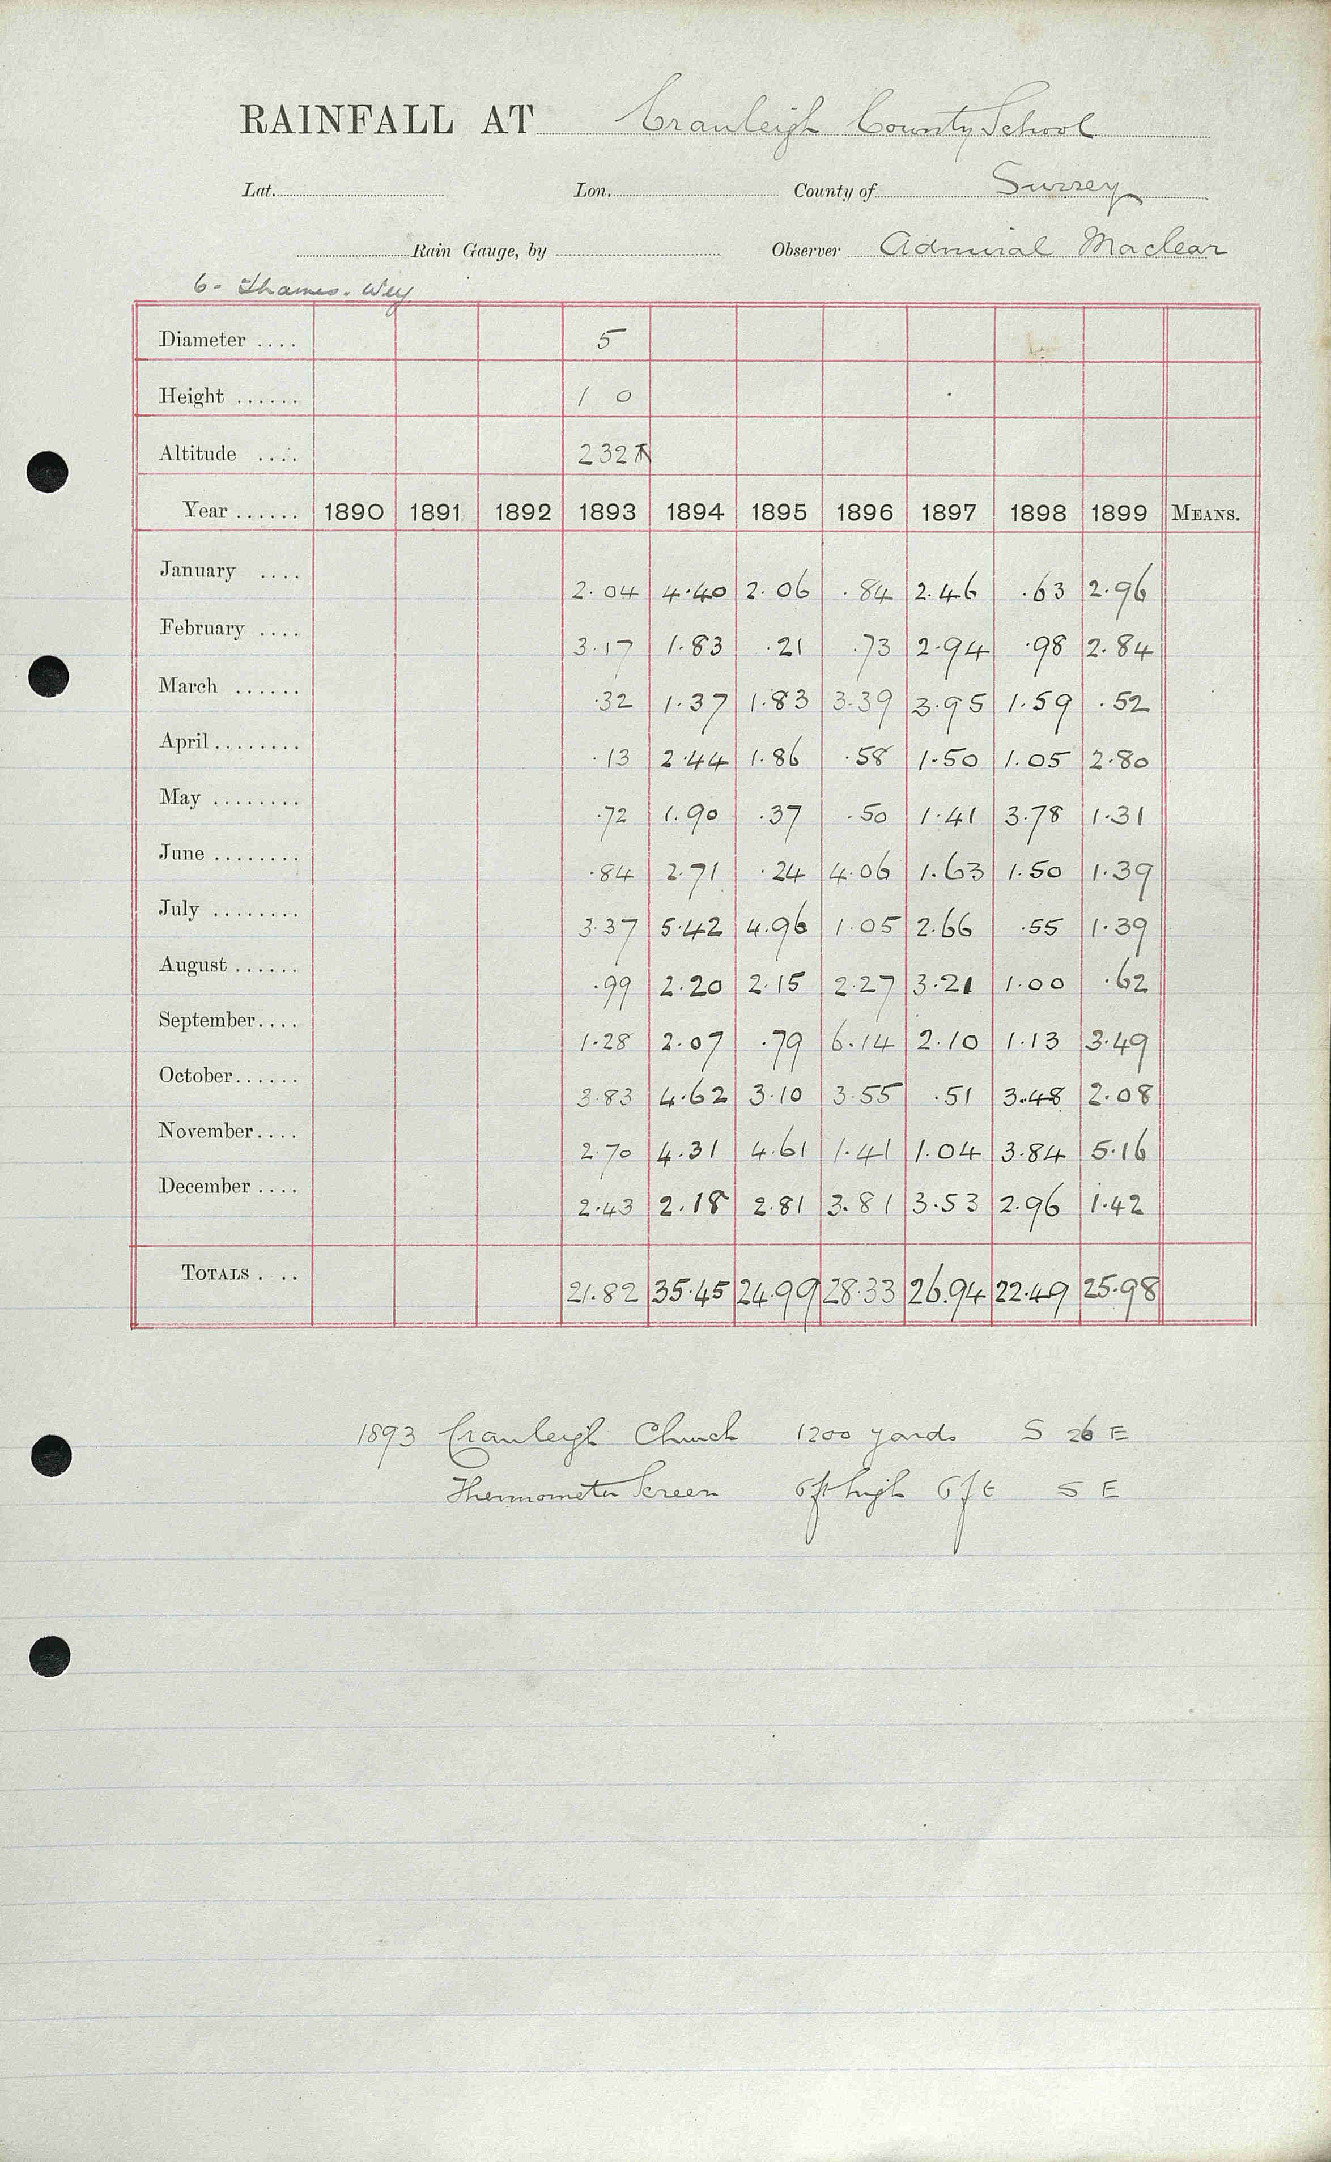 RAINFALL AT Cranleigh County School
Lat. Lon. County of Surrey
Rain Gauge, by Observer Admiral Maclear
6 - Thames. Wey
Diameter .... 5
Height ...... 1 0
Altitude .... 232
Year ...... 1890 1891 1892 1893 1894 1895 1896 1897 1898 1899 MEANS.
January .... 2.04 4.40 2.06 .84 2.46 .63 2.96
February .... 3.17 1.83 .21 .73 2.94 .98 2.84
March ...... .32 1.37 1.83 3.39 3.95 1.59 .52
April........ .13 2.44 1.86 .58 1.50 1.05 2.80
May ........ .72 1.90 .37 .50 1.41 3.78 1.31
June ........ .84 2.71 .24 4.06 1.63 1.50 1.39
July ........ 3.37 5.42 4.96 1.05 2.66 .55 1.39
August ...... .99 2.20 2.15 2.27 3.21 1.00 .62
September.... 1.28 2.07 .79 6.14 2.10 1.13 3.49
October...... 3.83 4.62 3.10 3.55 .51 3.48 2.08
November.... 2.70 4.31 4.61 1.41 1.04 3.84 5.16
December .... 2.43 2.18 2.81 3.81 3.53 2.96 1.42
TOTALS . .. 21.82 35.45 24.99 28.33 26.94 22.49 25.98
1893 Cranleigh Church 1200 yards S 26 E
Thermometer Screen 6ft high 6ft S E